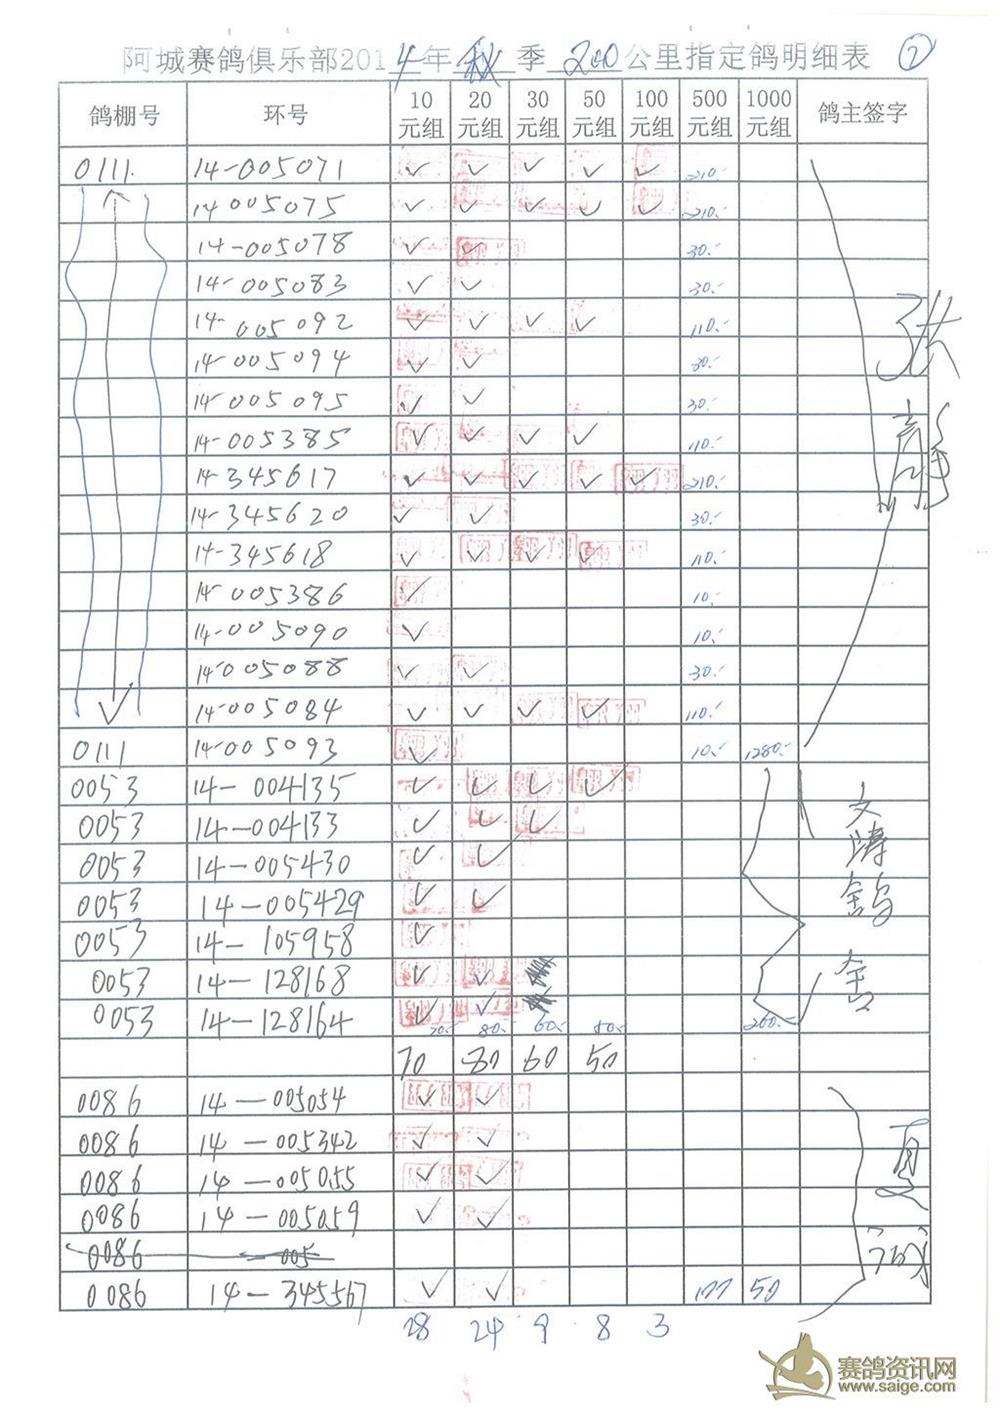 阿城赛鸽俱乐部2014年秋季200公里指定鸽明细表 ②
鸽棚号 环号 10元组 20元组 30元组 50元组 100元组 500元组 1000元组 鸽主签字
0111. 14-005071 ✓ ✓ ✓ ✓ ✓ 210.-
14 005075 ✓ ✓ ✓ ✓ ✓ 210.-
14-005078 ✓ ✓ 30.-
14-005083 ✓ ✓ 30.-
14-005092 ✓ ✓ ✓ ✓ 110.-
14-005094 ✓ ✓ 30.-
14-005095 ✓ ✓ 30.-
14-005385 ✓ ✓ ✓ ✓ 110.-
14-345617 ✓ ✓ ✓ ✓ ✓ 210.-
14-345620 ✓ ✓ 30.-
14-345618 ✓ ✓ ✓ ✓ 110.-
14-005386 ✓ 10.-
14-005090 ✓ 10.-
14-005088 ✓ ✓ 30.-
14-005084 ✓ ✓ ✓ ✓ 110.-
0111 14-005093 ✓ 10.- 1280.-
张静
0053 14-004135 ✓ ✓ ✓ ✓
0053 14-004133 ✓ ✓ ✓
0053 14-005430 ✓ ✓
0053 14-005429 ✓ ✓
0053 14-105958 ✓
0053 14-128168 ✓ ✓
0053 14-128164 ✓ 70.- ✓ 80.- 60.- 50.- 260.-
文涛鸽舍
70 80 60 50
0086 14-005054 ✓ ✓
0086 14-005342 ✓ ✓
0086 14-005055 ✓ ✓
0086 14-005059 ✓ ✓
0086 005
0086 14-345567 ✓ ✓ 50
28 24 9 8 3
赛鸽资讯网
www.saige.com